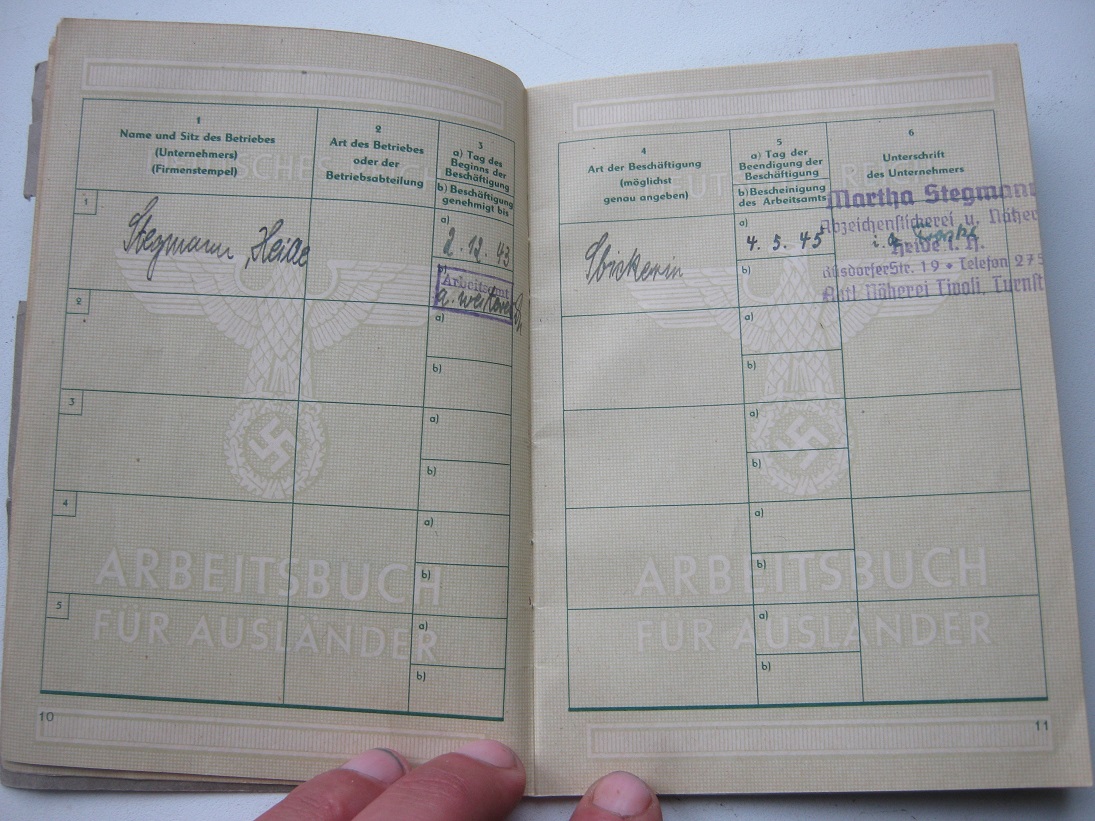 DEUTSCHES REICH
1
Name und Sitz des Betriebes
(Unternehmers)
(Firmenstempel)
2
Art des Betriebes
oder der
Betriebsabteilung
3
a) Tag des
Beginns der
Beschäftigung
b) Beschäftigung
genehmigt bis
1
Stegmann, Heide
a)
2. 12. 43
b)
Arbeitsamt
2
a)
b)
3
a)
b)
4
a)
b)
5
a)
b)
ARBEITSBUCH
FÜR AUSLÄNDER
10
4
Art der Beschäftigung
(möglichst
genau angeben)
5
a) Tag der
Beendigung der
Beschäftigung
b) Bescheinigung
des Arbeitsamts
6
Unterschrift
des Unternehmers
Stickerin
a)
4. 5. 45
b)
Martha Stegmann
Abzeichenstickerei u. Näherei
Heide i. H.
Rüsdorferstr. 19 • Telefon 275
Näherei Tivoli, Turnstr
a)
b)
a)
b)
a)
b)
a)
b)
ARBEITSBUCH
FÜR AUSLÄNDER
11